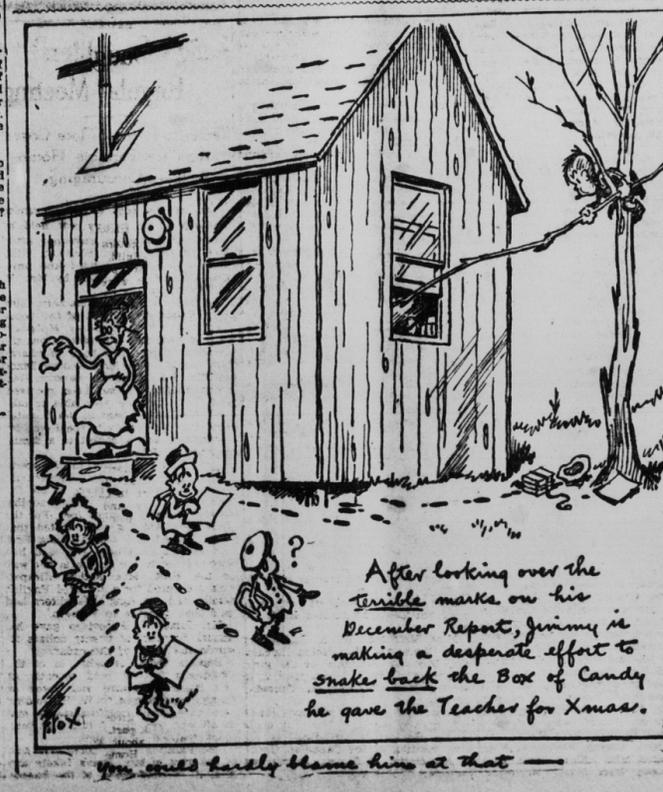 ?
After looking over the
terrible marks on his
December Report, Jimmy is
making a desperate effort to
snake back the Box of Candy
he gave the Teacher for Xmas.
You could hardly blame him at that —